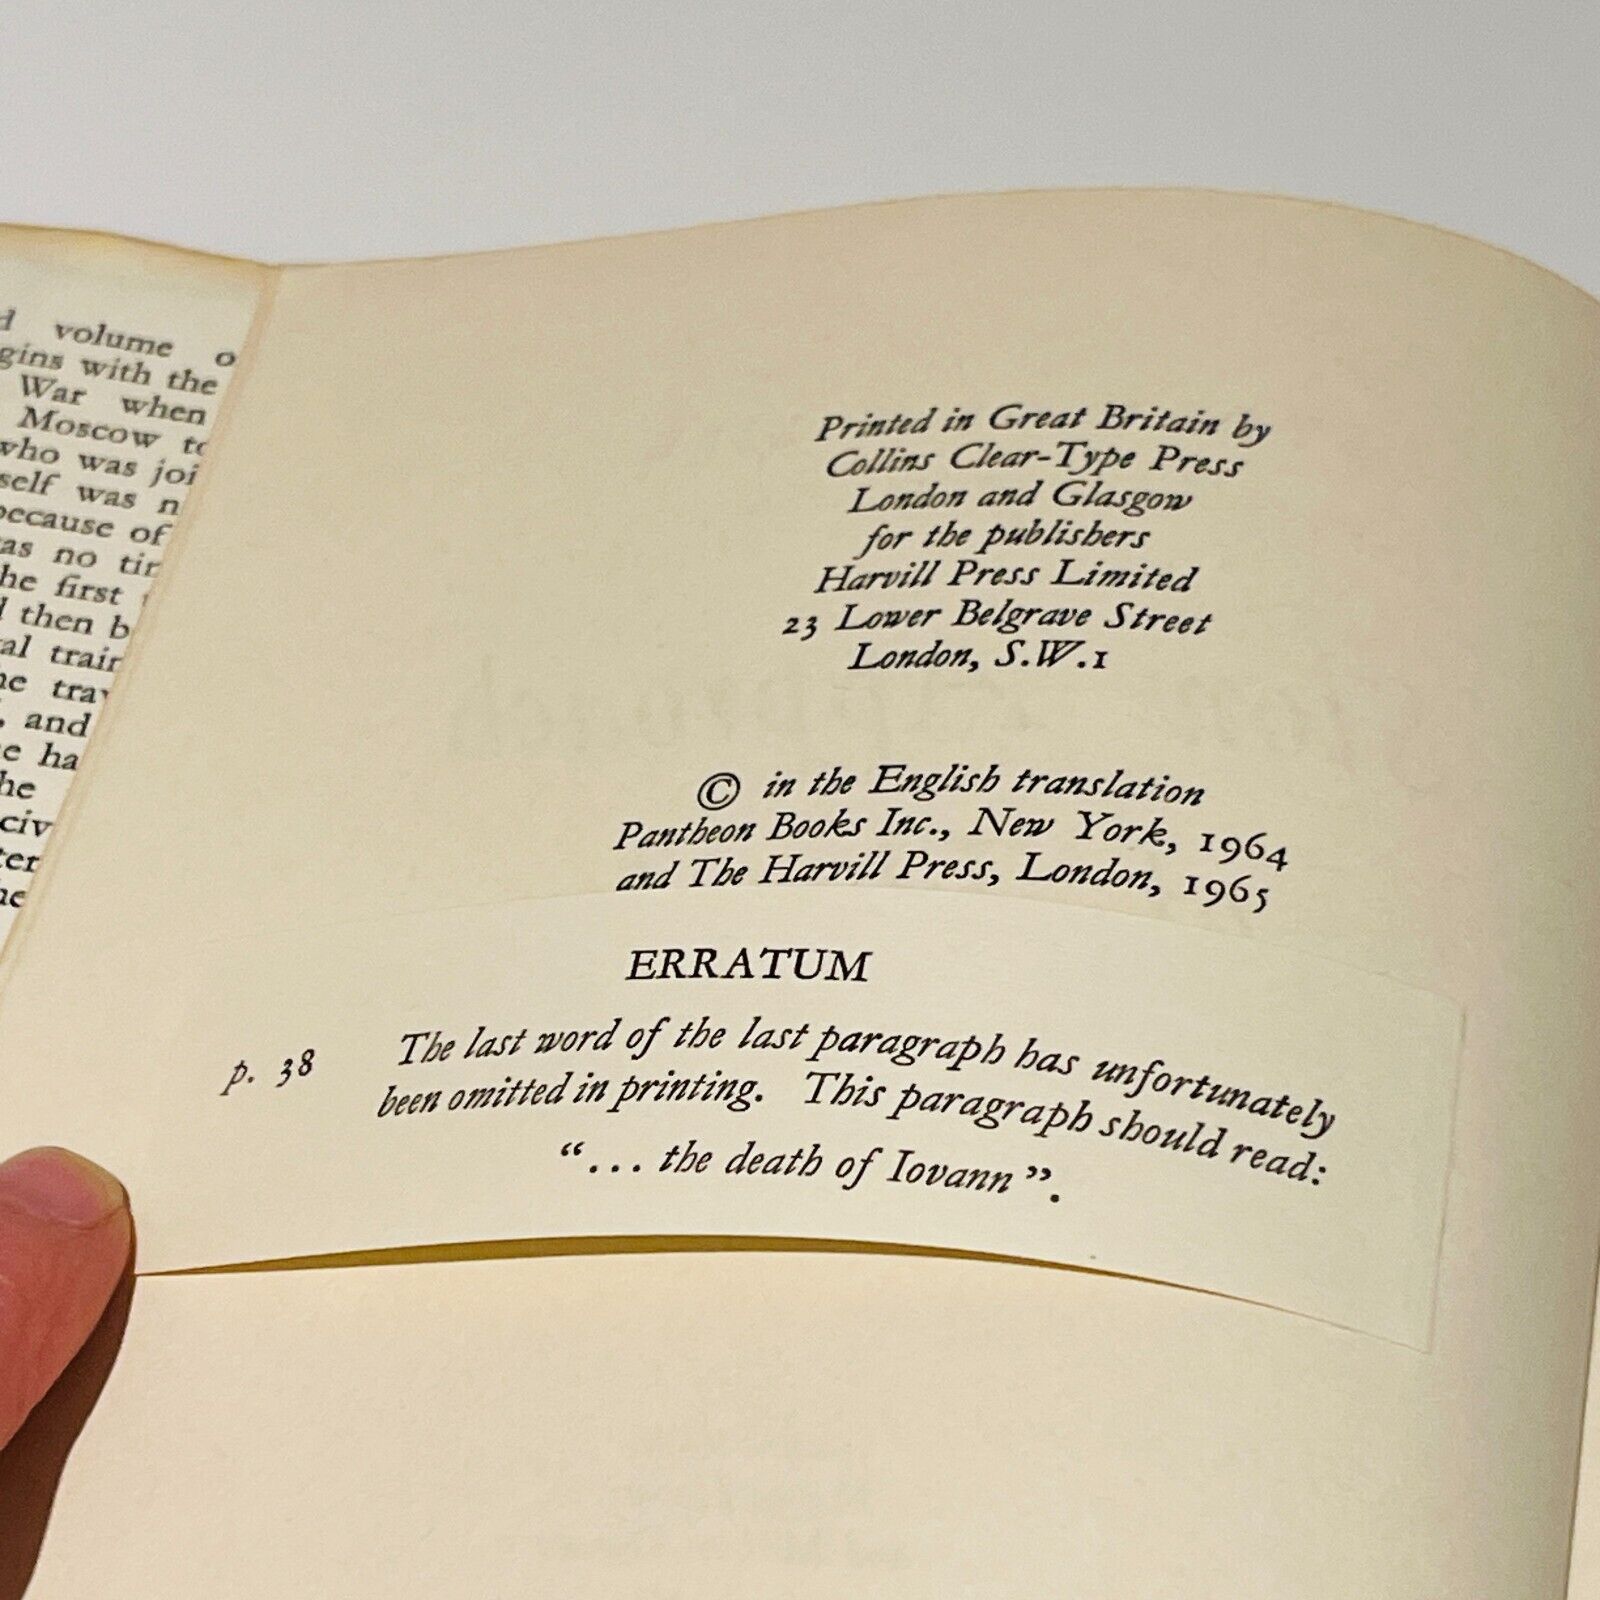 volume
gins with the
War when
Moscow
who was
self was
because of
as no
the first
then
train
the
and
Printed in Great Britain by
Collins Clear-Type Press
London and Glasgow
for the publishers
Harvill Press Limited
23 Lower Belgrave Street
London, S.W.1
© in the English translation
Pantheon Books Inc., New York, 1964
and The Harvill Press, London, 1965
ERRATUM
p. 38 The last word of the last paragraph has unfortunately
been omitted in printing. This paragraph should read:
“... the death of Iovann”.